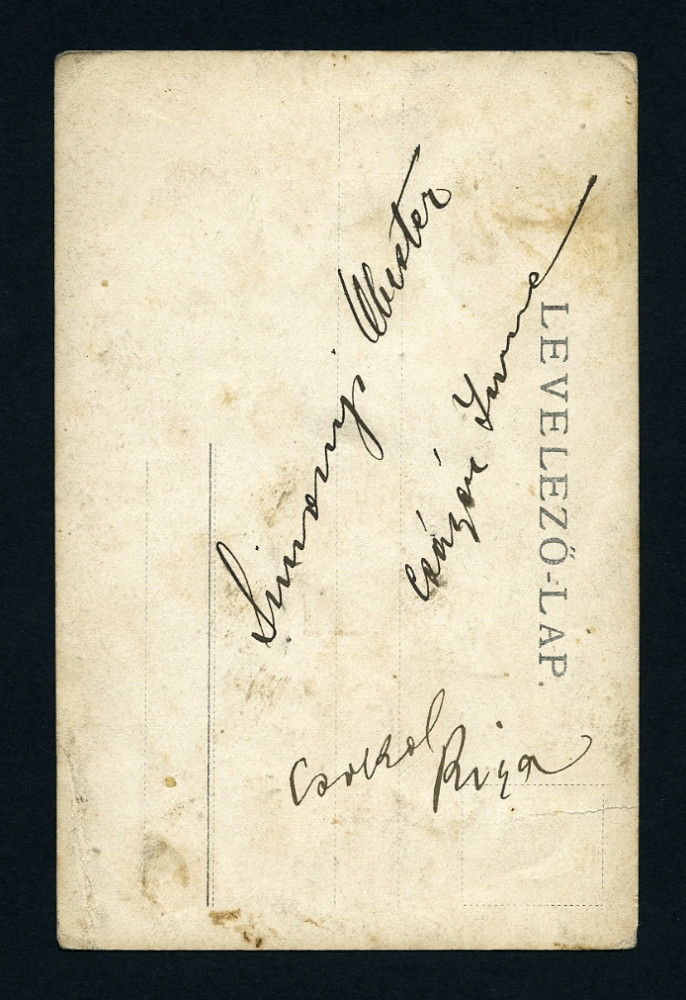 LEVELEZŐ-LAP.
Simonyi Mester
Császár Imre
Csókol
Riza